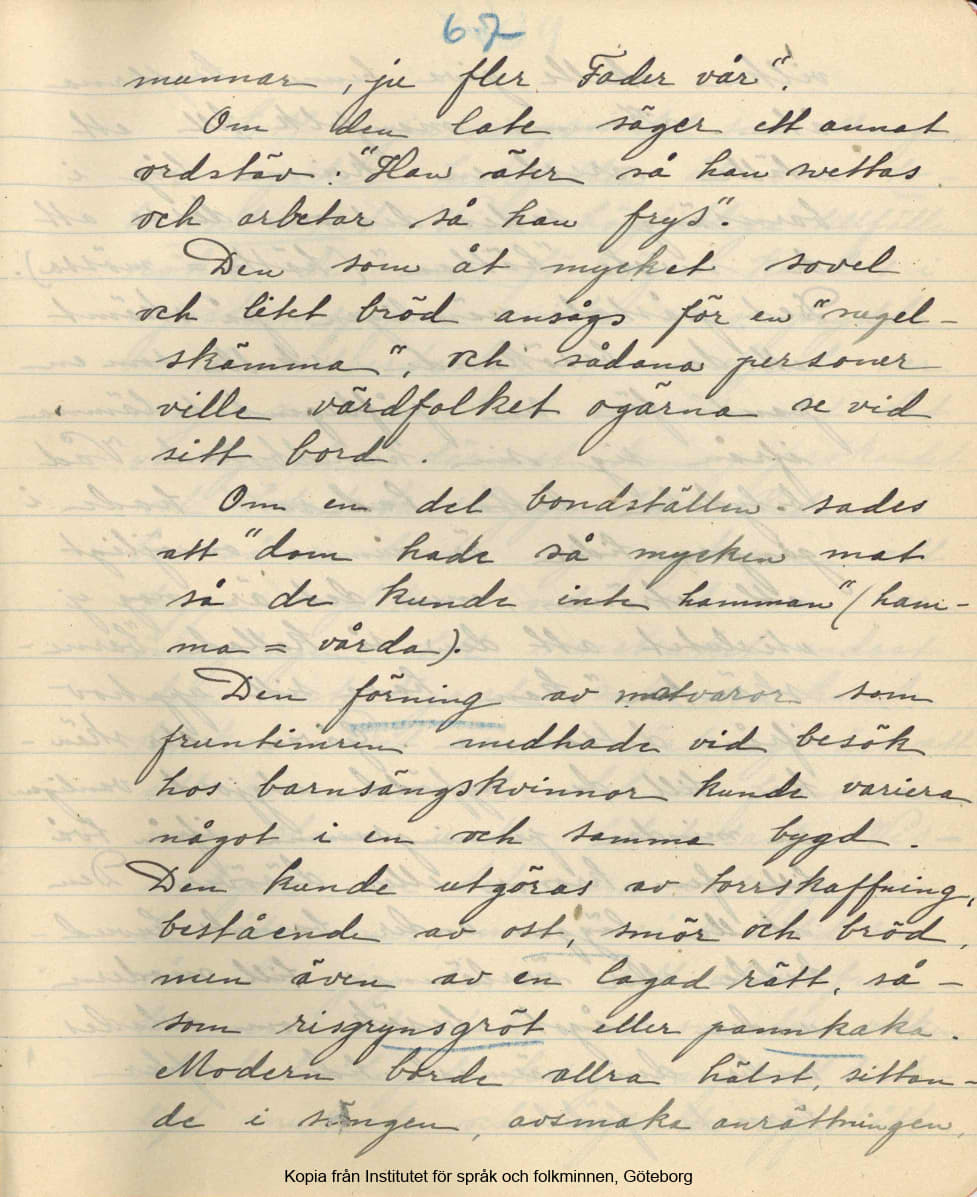 67
munnar, ju fler Fader vår".
Om den late säger ett annat
ordstäv: "Han äter så han svettas
och arbetar så han frys".
Den som åt mycket sovel
och litet bröd ansågs för en "sugel-
skämma", och sådana personer
ville värdfolket ogärna se vid
sitt bord.
Om en del bondställen sades
att "dom hade så mycken mat
så de kunde inte hamman" (ham-
ma = vårda).
Den förning av matvaror som
fruntimren medhade vid besök
hos barnsängskvinnor kunde variera
något i en och samma bygd.
Den kunde utgöras av torrskaffning,
bestående av ost, smör och bröd,
men även av en lagad rätt, så-
som risgrynsgröt eller pannkaka.
Modern borde allra hälst, sittan-
de i sängen, avsmaka anrättningen,
Kopia från Institutet för språk och folkminnen, Göteborg